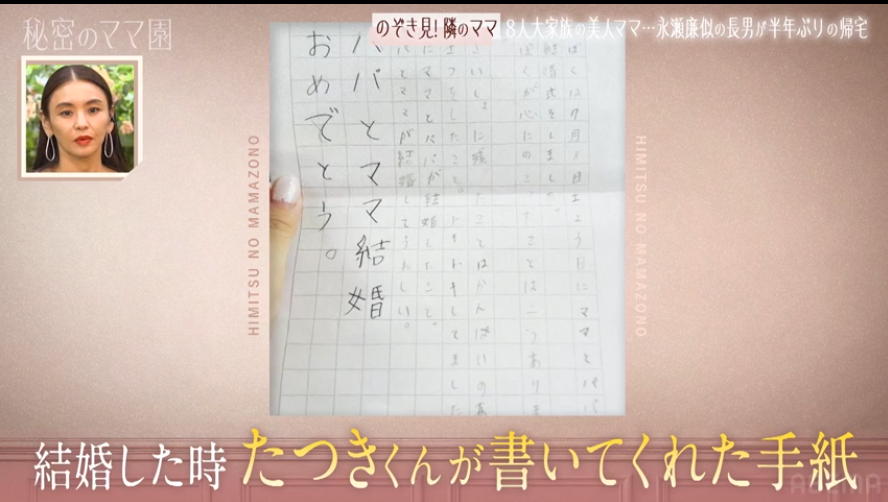 秘密のママ園
のぞき見!隣のママ
8人大家族の美人ママ…永瀬廉似の長男が半年ぶりの帰宅
HIMITSU NO MAMAZONO
HIMITSU NO MAMAZONO
ぼくは9月1日土よう日にママとパパ
結婚式をしました。
ぼくが心にのこったことは二つありま
にママとパパが結婚したこと。
パとママが結婚してうれしい。
パパとママ結婚
おめでとう。
結婚した時たつきくんが書いてくれた手紙
ABEMA